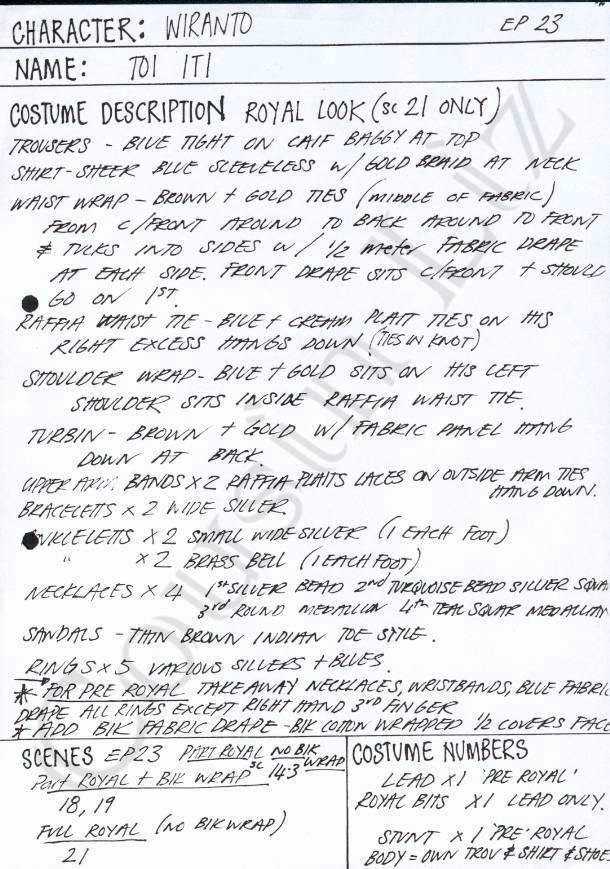 CHARACTER: WIRANTO EP 23
NAME: TOI ITI
COSTUME DESCRIPTION ROYAL LOOK (SC 21 ONLY)
TROUSERS - BLUE TIGHT ON CALF BAGGY AT TOP
SHIRT-SHEER BLUE SLEEVELESS W/ GOLD BRAID AT NECK
WAIST WRAP - BROWN + GOLD TIES (MIDDLE OF FABRIC)
FROM C/FRONT AROUND TO BACK AROUND TO FRONT
& TUCKS INTO SIDES W/ 1/2 meter FABRIC DRAPE
AT EACH SIDE. FRONT DRAPE SITS C/FRONT + SHOULD
GO ON 1ST.
RAFFIA WAIST TIE - BLUE + CREAM PLAIT TIES ON HIS
RIGHT EXCESS HANGS DOWN (TIES IN KNOT)
SHOULDER WRAP - BLUE + GOLD SITS ON HIS LEFT
SHOULDER SITS INSIDE RAFFIA WAIST TIE.
TURBIN - BROWN + GOLD W/ FABRIC PANEL HANG
DOWN AT BACK
UPPER ARM BANDS X 2 RAFFIA PLAITS LACES ON OUTSIDE ARM TIES
HANG DOWN.
BRACELETTS X 2 WIDE SILVER
ANKLELETTS X 2 SMALL WIDE SILVER (1 EACH FOOT)
" X 2 BRASS BELL (1 EACH FOOT)
NECKLACES X 4 1st SILVER BEAD 2nd TURQUOISE BEAD SILVER SQUA
3rd ROUND MEDALLION 4th TEAL SQUAR MEDALLION
SANDALS - THIN BROWN INDIAN TOE STYLE.
RINGS X 5 VARIOUS SILVERS + BLUES.
* FOR PRE ROYAL TAKE AWAY NECKLACES, WRISTBANDS, BLUE FABRIC
DRAPE ALL RINGS EXCEPT RIGHT HAND 3rd FINGER
* ADD BLK FABRIC DRAPE - BLK COTTON WRAPPED 1/2 COVERS FACE
SCENES EP23 PART ROYAL NO BLK WRAP
Part ROYAL + BLK WRAP SC 14:3
18, 19
FULL ROYAL (NO BLK WRAP)
21
COSTUME NUMBERS
LEAD X1 'PRE ROYAL'
ROYAL BITS X1 LEAD ONLY.
STUNT X 1 'PRE' ROYAL
BODY = OWN TROU & SHIRT & SHOES
Cousin Liz